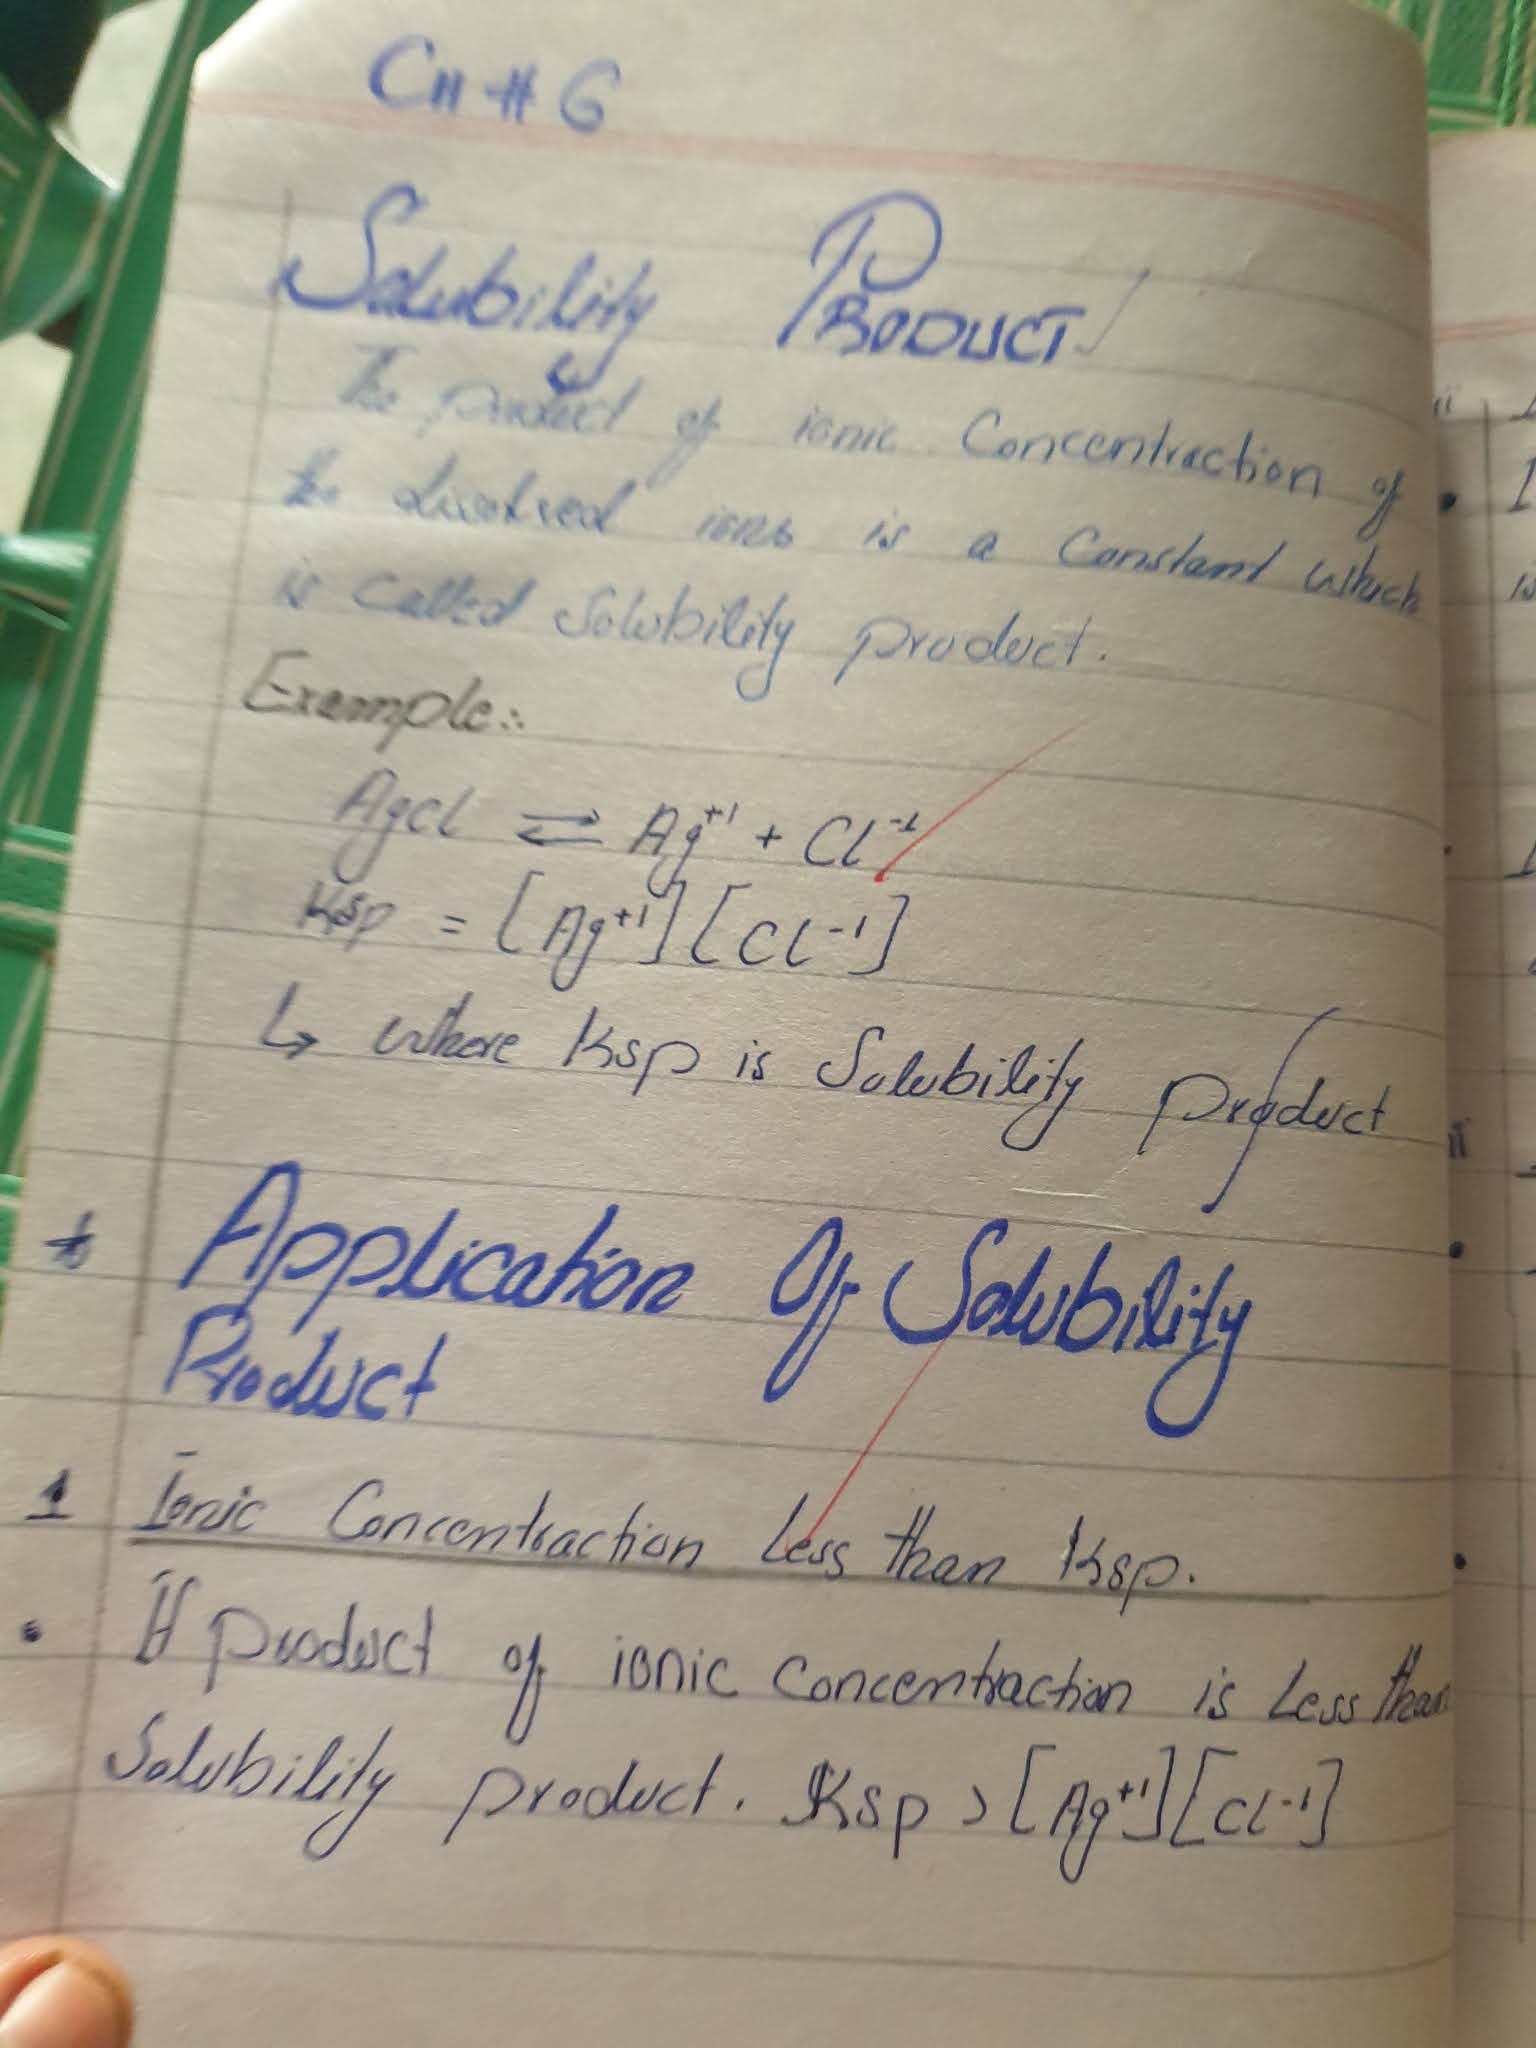 CH # 6
Solubility PRODUCT
The product of ionic Concentraction of
the disolved ions is a Constant which
is called Solubility product.
Example:
AgCl ⇌ Ag⁺¹ + Cl⁻¹
Ksp = [Ag⁺¹][Cl⁻¹]
↳ where Ksp is Solubility product
* Application Of Solubility
Product
1 Ionic Concentraction Less than Ksp.
• If product of ionic Concentraction is Less than
Solubility product. Ksp > [Ag⁺¹][Cl⁻¹]